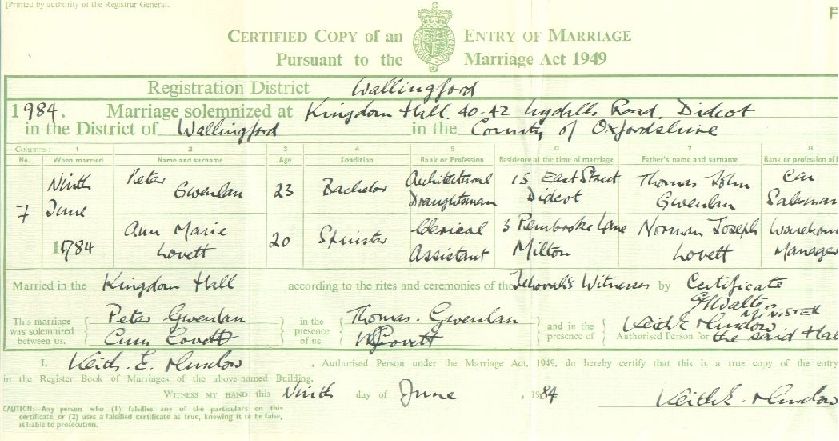 [Printed by authority of the Registrar General.
CERTIFIED COPY of an ENTRY OF MARRIAGE
Pursuant to the Marriage Act 1949
Registration District Wallingford
1984. Marriage solemnized at Kingdom Hall 40-42 Lydalls Road, Didcot
in the District of Wallingford in the County of Oxfordshire
Columns: 1 2 3 4 5 6 7 8
No. When married Name and surname Age Condition Rank or Profession Residence at the time of marriage Father's name and surname Rank or profession of
7 Ninth June 1984 Peter Gwenlan 23 Bachelor Architectural Draughtsman 15 East Street Didcot Thomas John Gwenlan Car Salesman
Ann Marie Lovett 20 Spinster Clerical Assistant 3 Pembroke Lane Milton Norman Joseph Lovett Warehouse Manager
Married in the Kingdom Hall according to the rites and ceremonies of the Jehovah's Witnesses by Certificate
This marriage was solemnized between us, Peter Gwenlan Lovett in the presence of us Thomas. Gwenlan Lovett and in the presence of Keith E Minister Authorised Person for the said Hall
I, Keith. E. , Authorised Person under the Marriage Act, 1949, do hereby certify that this is a true copy of the entry
in the Register Book of Marriages of the above-named Building.
WITNESS MY HAND this Ninth day of June , 1984 Keith E.
CAUTION:- Any person who (1) falsifies any of the particulars on this
certificate or (2) uses a falsified certificate as true, knowing it to be false,
is liable to prosecution.